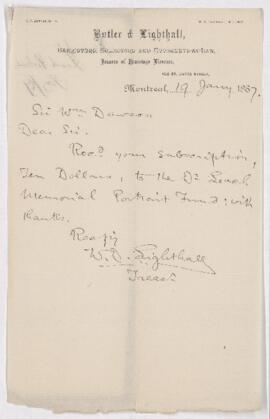 Butler & Lighthall,
BARRISTERS, SOLICITORS AND COMMISSIONERS,
Issuers of Marriage Licenses,
Montreal, 19 Jany 1887.
Sir Wm Dawson
Dear Sir.
Recd. your subscription,
Ten Dollars, to the Dr Leach
Memorial Portrait Fund; with
thanks.
Resply
W. D. Lighthall
Treasr